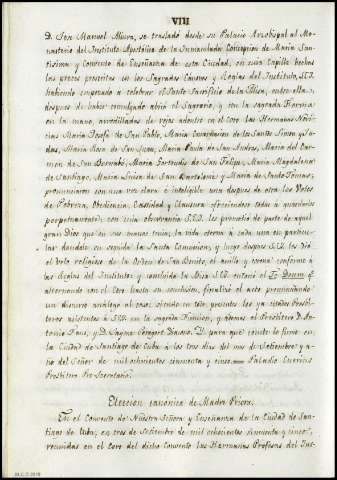 VIII
D. Jose Manuel Miura, se trasladó desde su Palacio Arzobispal al Mo-
nasterio del Instituto Apostólico de la Inmaculada Concepcion de Maria San-
tisima y Convento de Enseñanza de esta Ciudad, en cuia Capilla hechas
las preces prescritas en los Sagrados Cánones y Reglas del Instituto, S.E.I.
habiendo empezado á celebrar el Santo Sacrificio de la Misa, entre ella,
despues de haber comulgado abrió el Sagrario, y con la Sagrada Forma
en la mano, arrodilladas de rejas adentro en el Coro las Hermanas Novi-
cias Maria Josefa de San Pablo, Maria Concepcion de los Santos Simon y Ju-
das, Maria Rosa de San Juan, Maria Paula de San Andres, Maria del Car-
men de San Bernabé, Maria Gertrudis de San Felipe, Maria Magdalena
de Santiago, Maria Luisa de San Bartolomé y Maria de Santo Tomas,
pronunciaron con una voz clara é inteligible una despues de otra los Votos
de Pobreza, Obediencia, Castidad y Clausura ofreciendose todas á guardarlos
perpetuamente; con cuia observancia S.E.I. les prometió de parte de aquel
gran Dios que en sus manos tenia, la vida eterna á cada una en particu-
lar dandole en seguida la Santa Comunion; y luego despues S.E.I. les dió
el Velo religioso de la Orden de San Benito, el anillo y corona conforme á
las Reglas del Instituto y concluida la Misa S.E.I. entonó el Te Deum q.e
alternando con el Coro hasta su conclusion, finalizó el acto pronunciando
un discurso análogo al caso, siendo en todo presentes los ya citados Presbí-
teros asistentes á S.E.I. en la sagrada funcion, y ademas el Presbítero D. An-
tonio Pans; y D. Cayma Peregort Diácono. Y para que conste lo firmo en
la Ciudad de Santiago de Cuba á los tres dias del mes de Setiembre y a-
ño del Señor de mil ochocientos cincuenta y cinco Paladio Currius
Presbítero Pro Secretario.
Eleccion canónica de Madre Priora.
En el Convento de Nuestra Señora y Enseñanza de la Ciudad de San-
tiago de Cuba, en tres de Setiembre de mil ochocientos cincuenta y cinco,
reunidas en el Coro del dicho Convento las Hermanas Profesas del Ins-